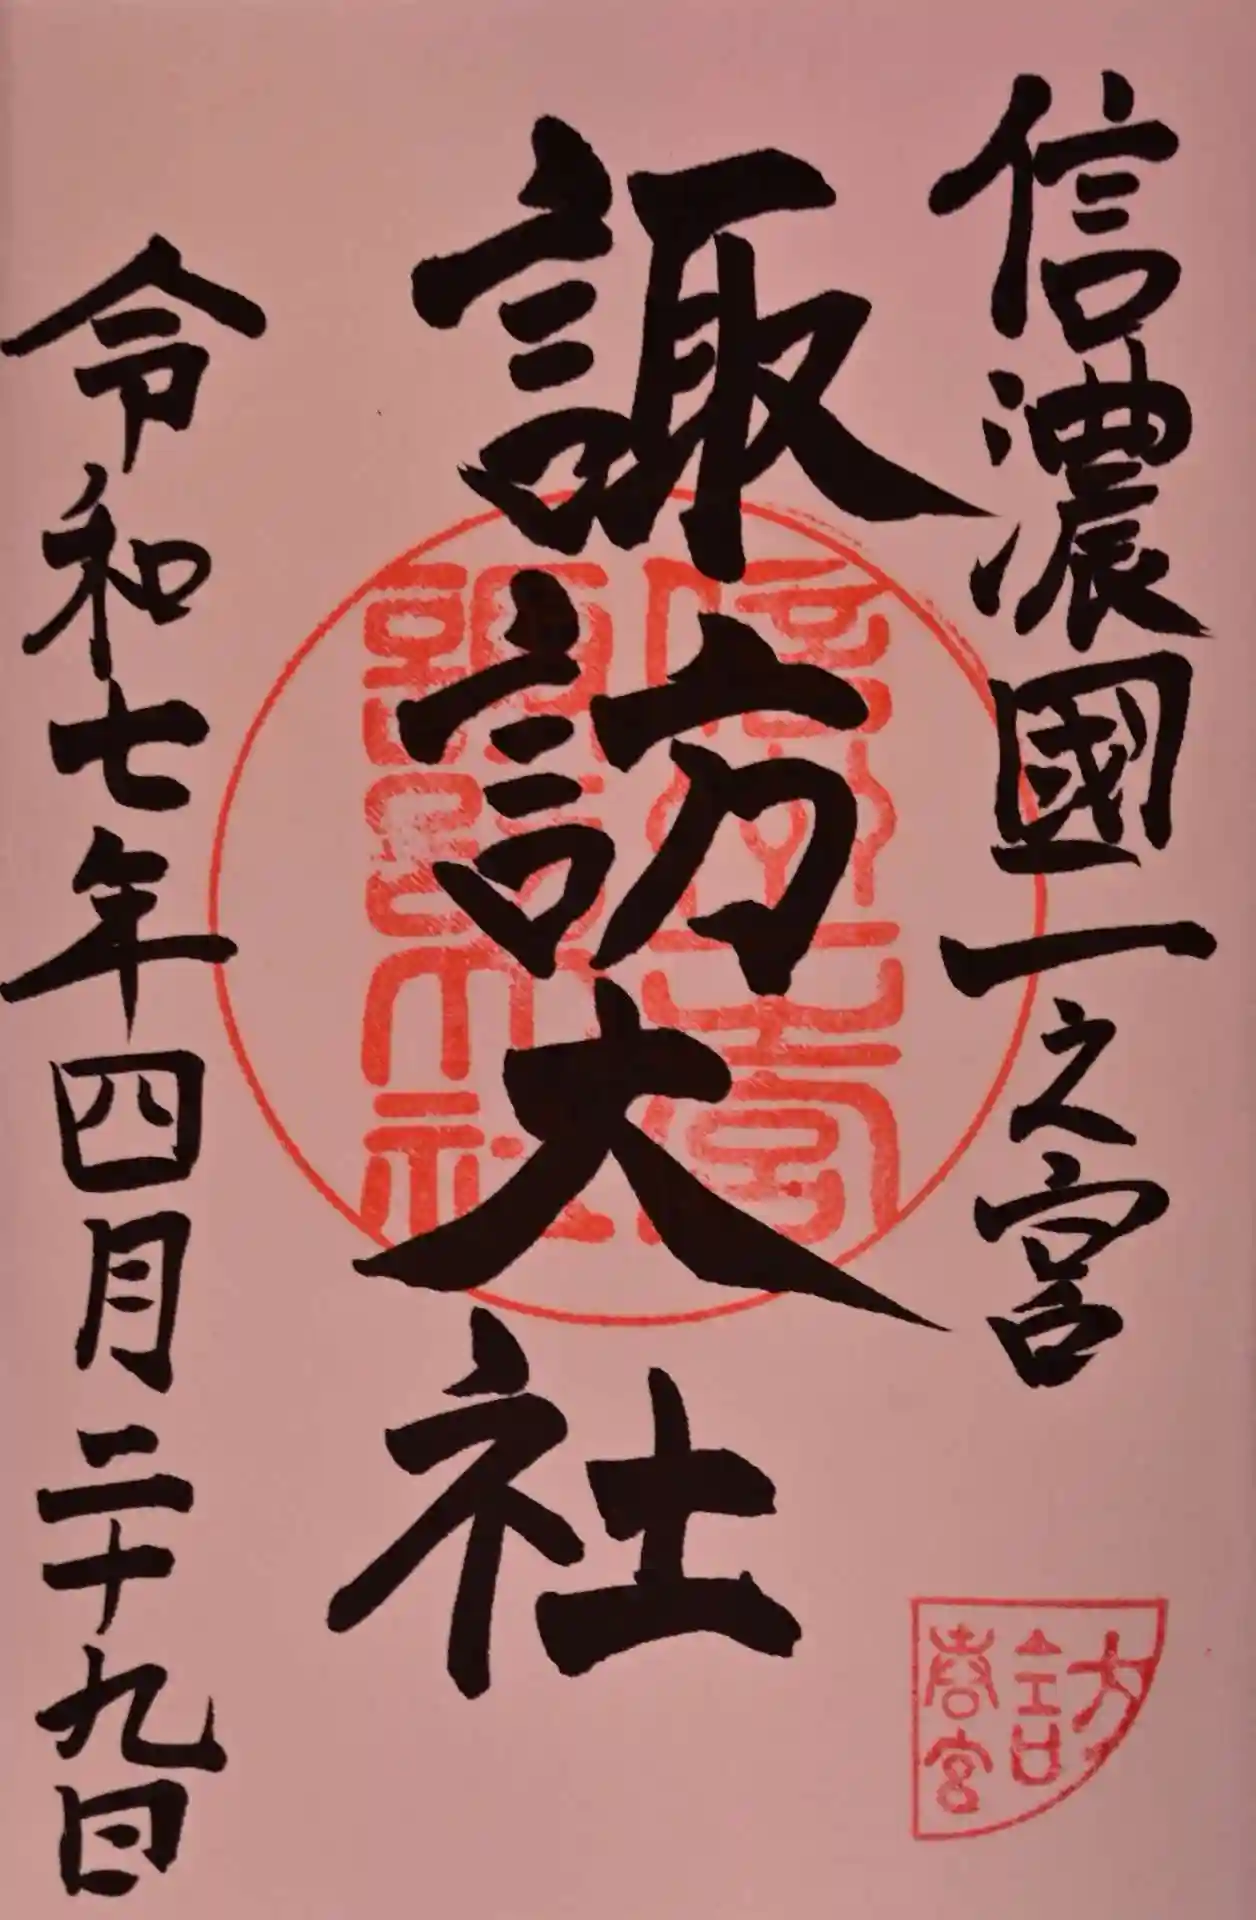 信濃國一之宮
諏訪大社
令和七年四月二十九日
訪
春宮